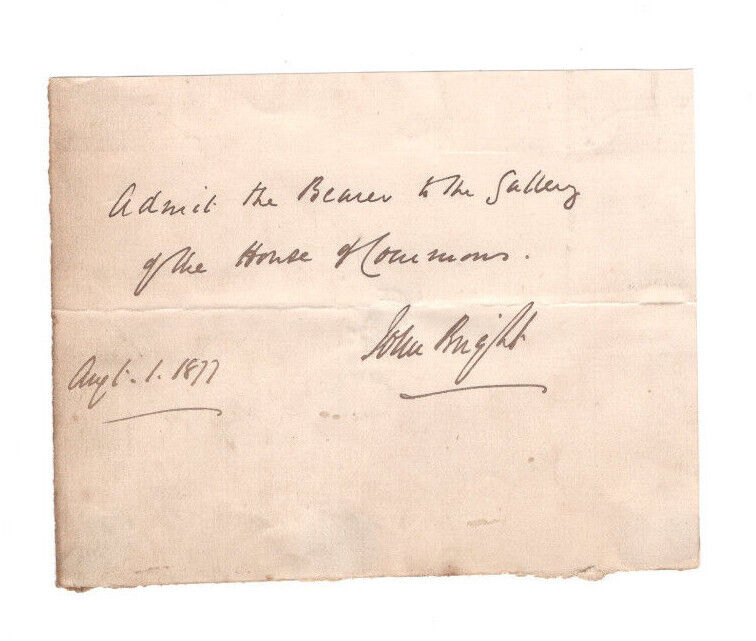 Admit the Bearer to the Gallery
of the House of Commons.
John Bright
Augt. 1. 1877